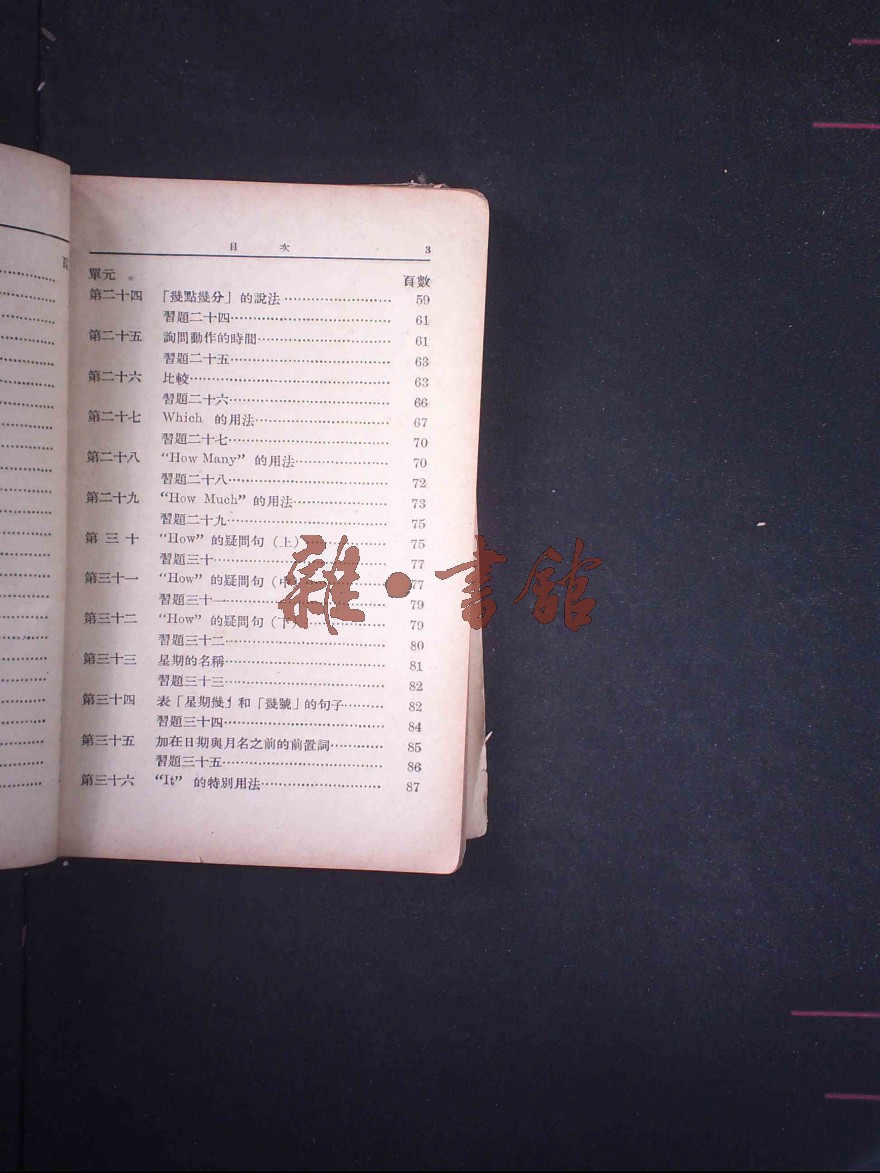 目 次 3
單元 頁數
第二十四 「幾點幾分」的說法 59
習題二十四 61
第二十五 詢問動作的時間 61
習題二十五 63
第二十六 比較 63
習題二十六 66
第二十七 Which 的用法 67
習題二十七 70
第二十八 “How Many” 的用法 70
習題二十八 72
第二十九 “How Much” 的用法 73
習題二十九 75
第三十 “How” 的疑問句（上） 75
習題三十 77
第三十一 “How” 的疑問句（中） 77
習題三十一 79
第三十二 “How” 的疑問句（下） 79
習題三十二 80
第三十三 星期的名稱 81
習題三十三 82
第三十四 表「星期幾」和「幾號」的句子 82
習題三十四 84
第三十五 加在日期與月名之前的前置詞 85
習題三十五 86
第三十六 “It” 的特別用法 87
雜·書館